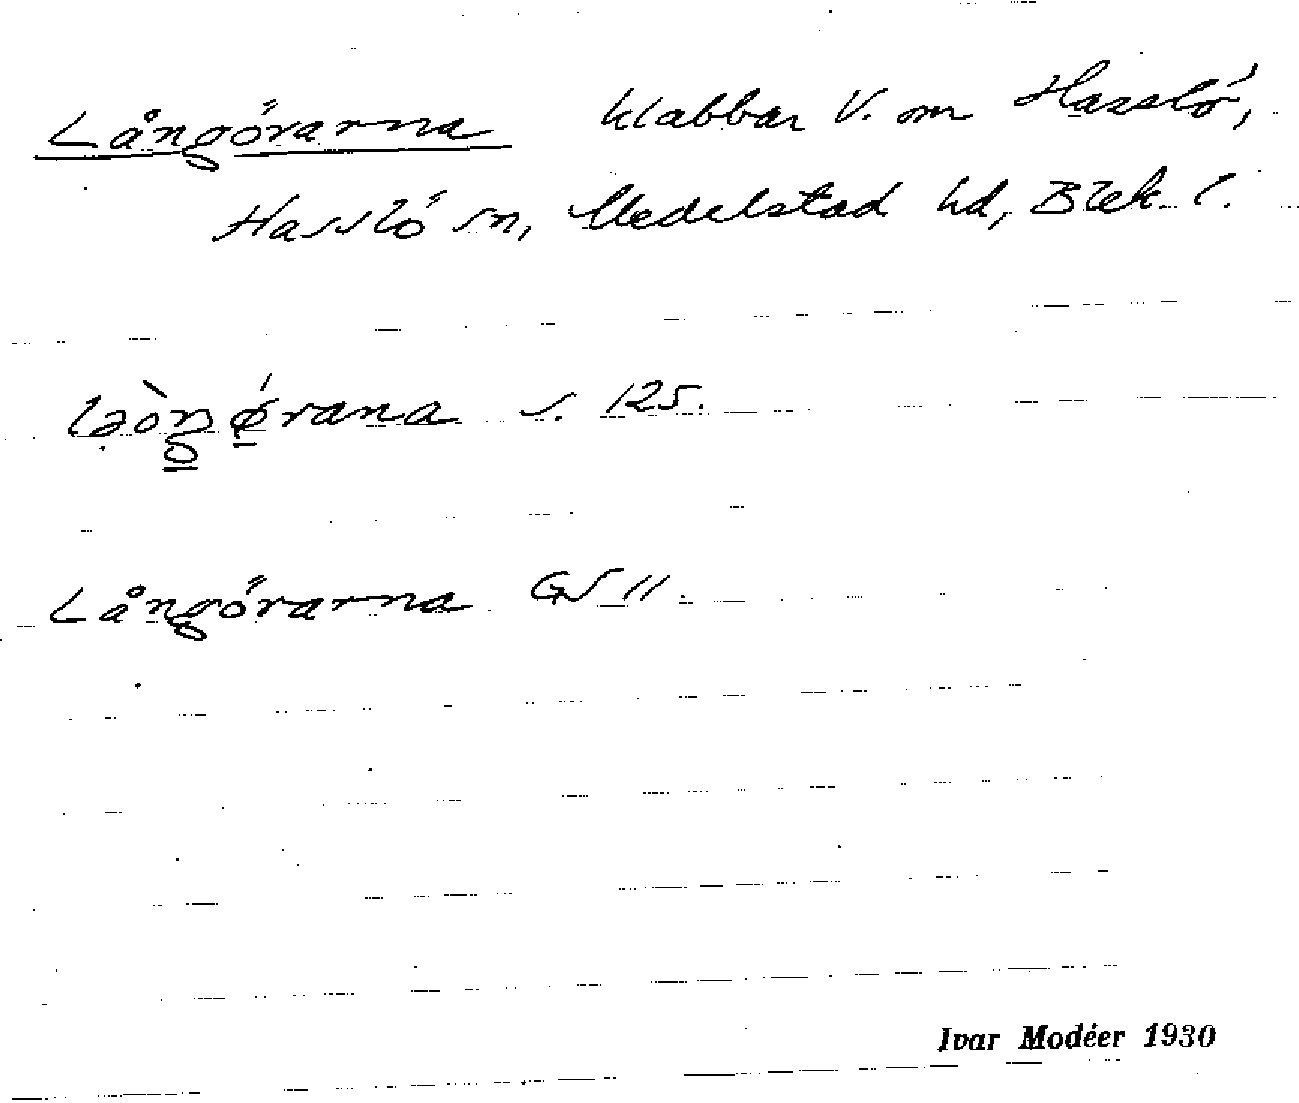 Långörarna klabbar V. om Hasslö,
Hasslö sn, Medelstad hd, Blek. l.
s. 125.
Långörarna GS 11.
Ivar Modéer 1930